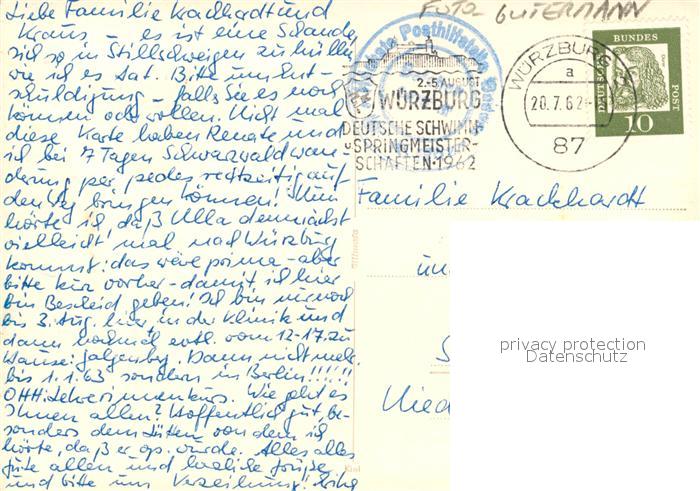 Liebe Familie Krackhardt und
Kraus – es ist eine Schande
sich so in Stillschweigen zu hüllen
wie ich es tat. Bitte um Ent-
schuldigung – falls Sie es noch
können oder wollen. Nicht mal
diese Karte haben Renate und
ich bei 7 Tagen Schwarzwaldwan-
derung per pedes rechtzeitig auf
den Weg bringen können! Nun
hörte ich, daß Ulla demnächst
vielleicht mal nach Würzburg
kommt: das wäre prima – aber
bitte kurz vorher – damit ich hier
bin Bescheid geben! Ich bin nur noch
bis 3. Aug. hier, in der Klinik und
dann nochmal evtl. vom 12-17. zu
Hause: Galgenberg. Dann nicht mehr
bis 1.1.63 sondern in Berlin!!!!!!
Wie geht es
Ihnen allen? Hoffentlich gut, be-
sonders dem von dem ich
hörte, daß er op. wurde. Alles alles
gute allen und herzliche Grüße
und bitte um Verzeihung! Ihre
FOTO - GUTERMANN
Posthilfsstelle
2.-5. AUGUST
WÜRZBURG
DEUTSCHE SCHWIMM-
u. SPRINGMEISTER-
SCHAFTEN · 1962
WÜRZBURG
a
20.7.62
87
BUNDES
DEUTSCHE
POST
10
Familie Krackhardt
un
S
Nied
privacy protection
Datenschutz